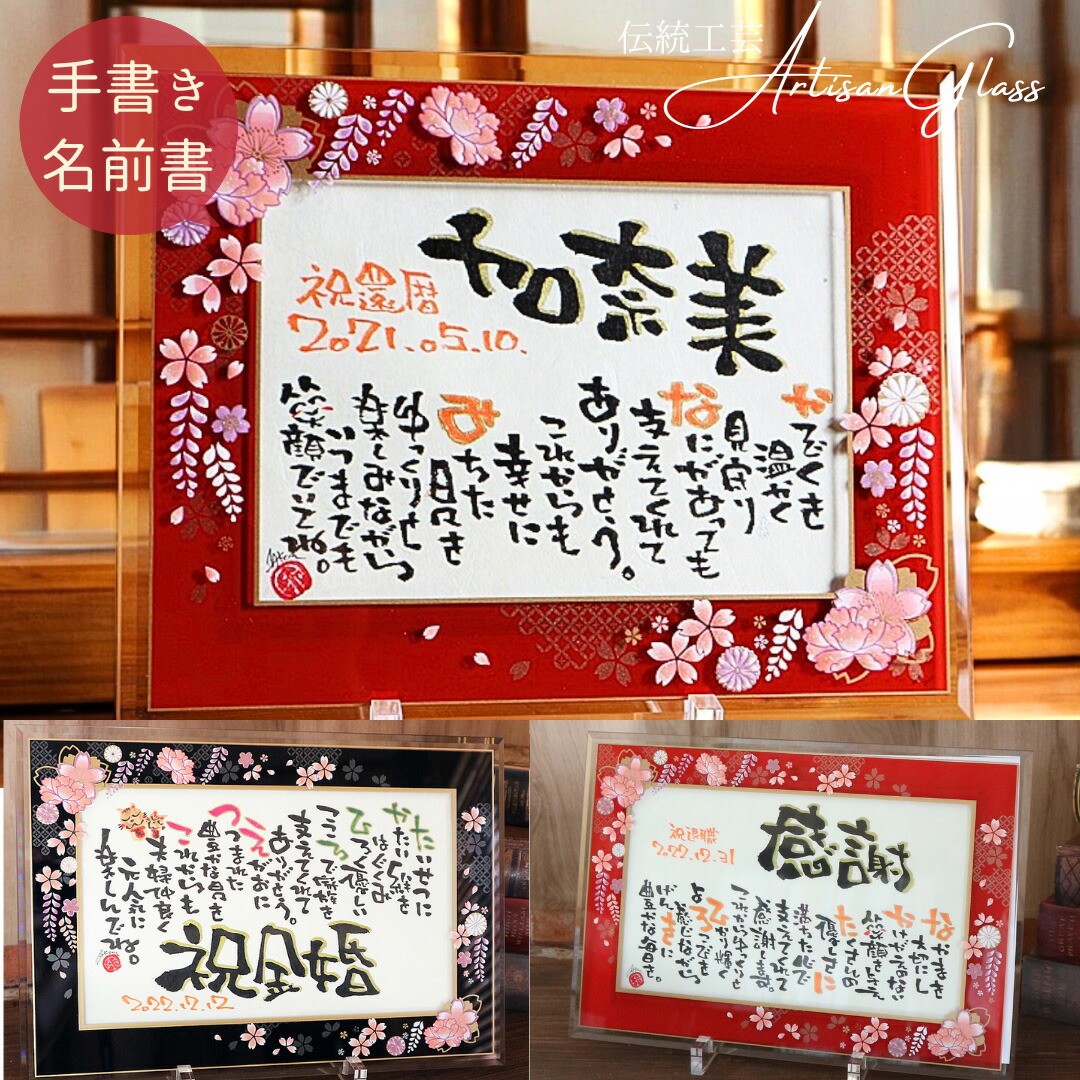 手書き
名前書
伝統工芸
Artisan Glass
加奈美
祝還暦
2021.05.10.
かぞくを
温かく
見守り
なにがあっても
支えてくれて
ありがとう。
これからも
幸せに
みちた
日々を
ゆっくりと
楽しみながら
いつまでも
笑顔でいてね。
たいせつに
はぐくみ
ありがとう。
えがおに
つつまれた
豊かな日々を
これからも
夫婦仲良く
元気に
楽しんでね。
祝金婚
2022.12.12
感謝
祝退職
2022.12.31
なかまを
大切にし
かけがえのない
たくさんの
優しさに
満ちた心で
支えてくれて
感謝します。
これからゆっくりと
ひかり輝く
よろこびを
感じながら
げんきに
豊かな毎日を。